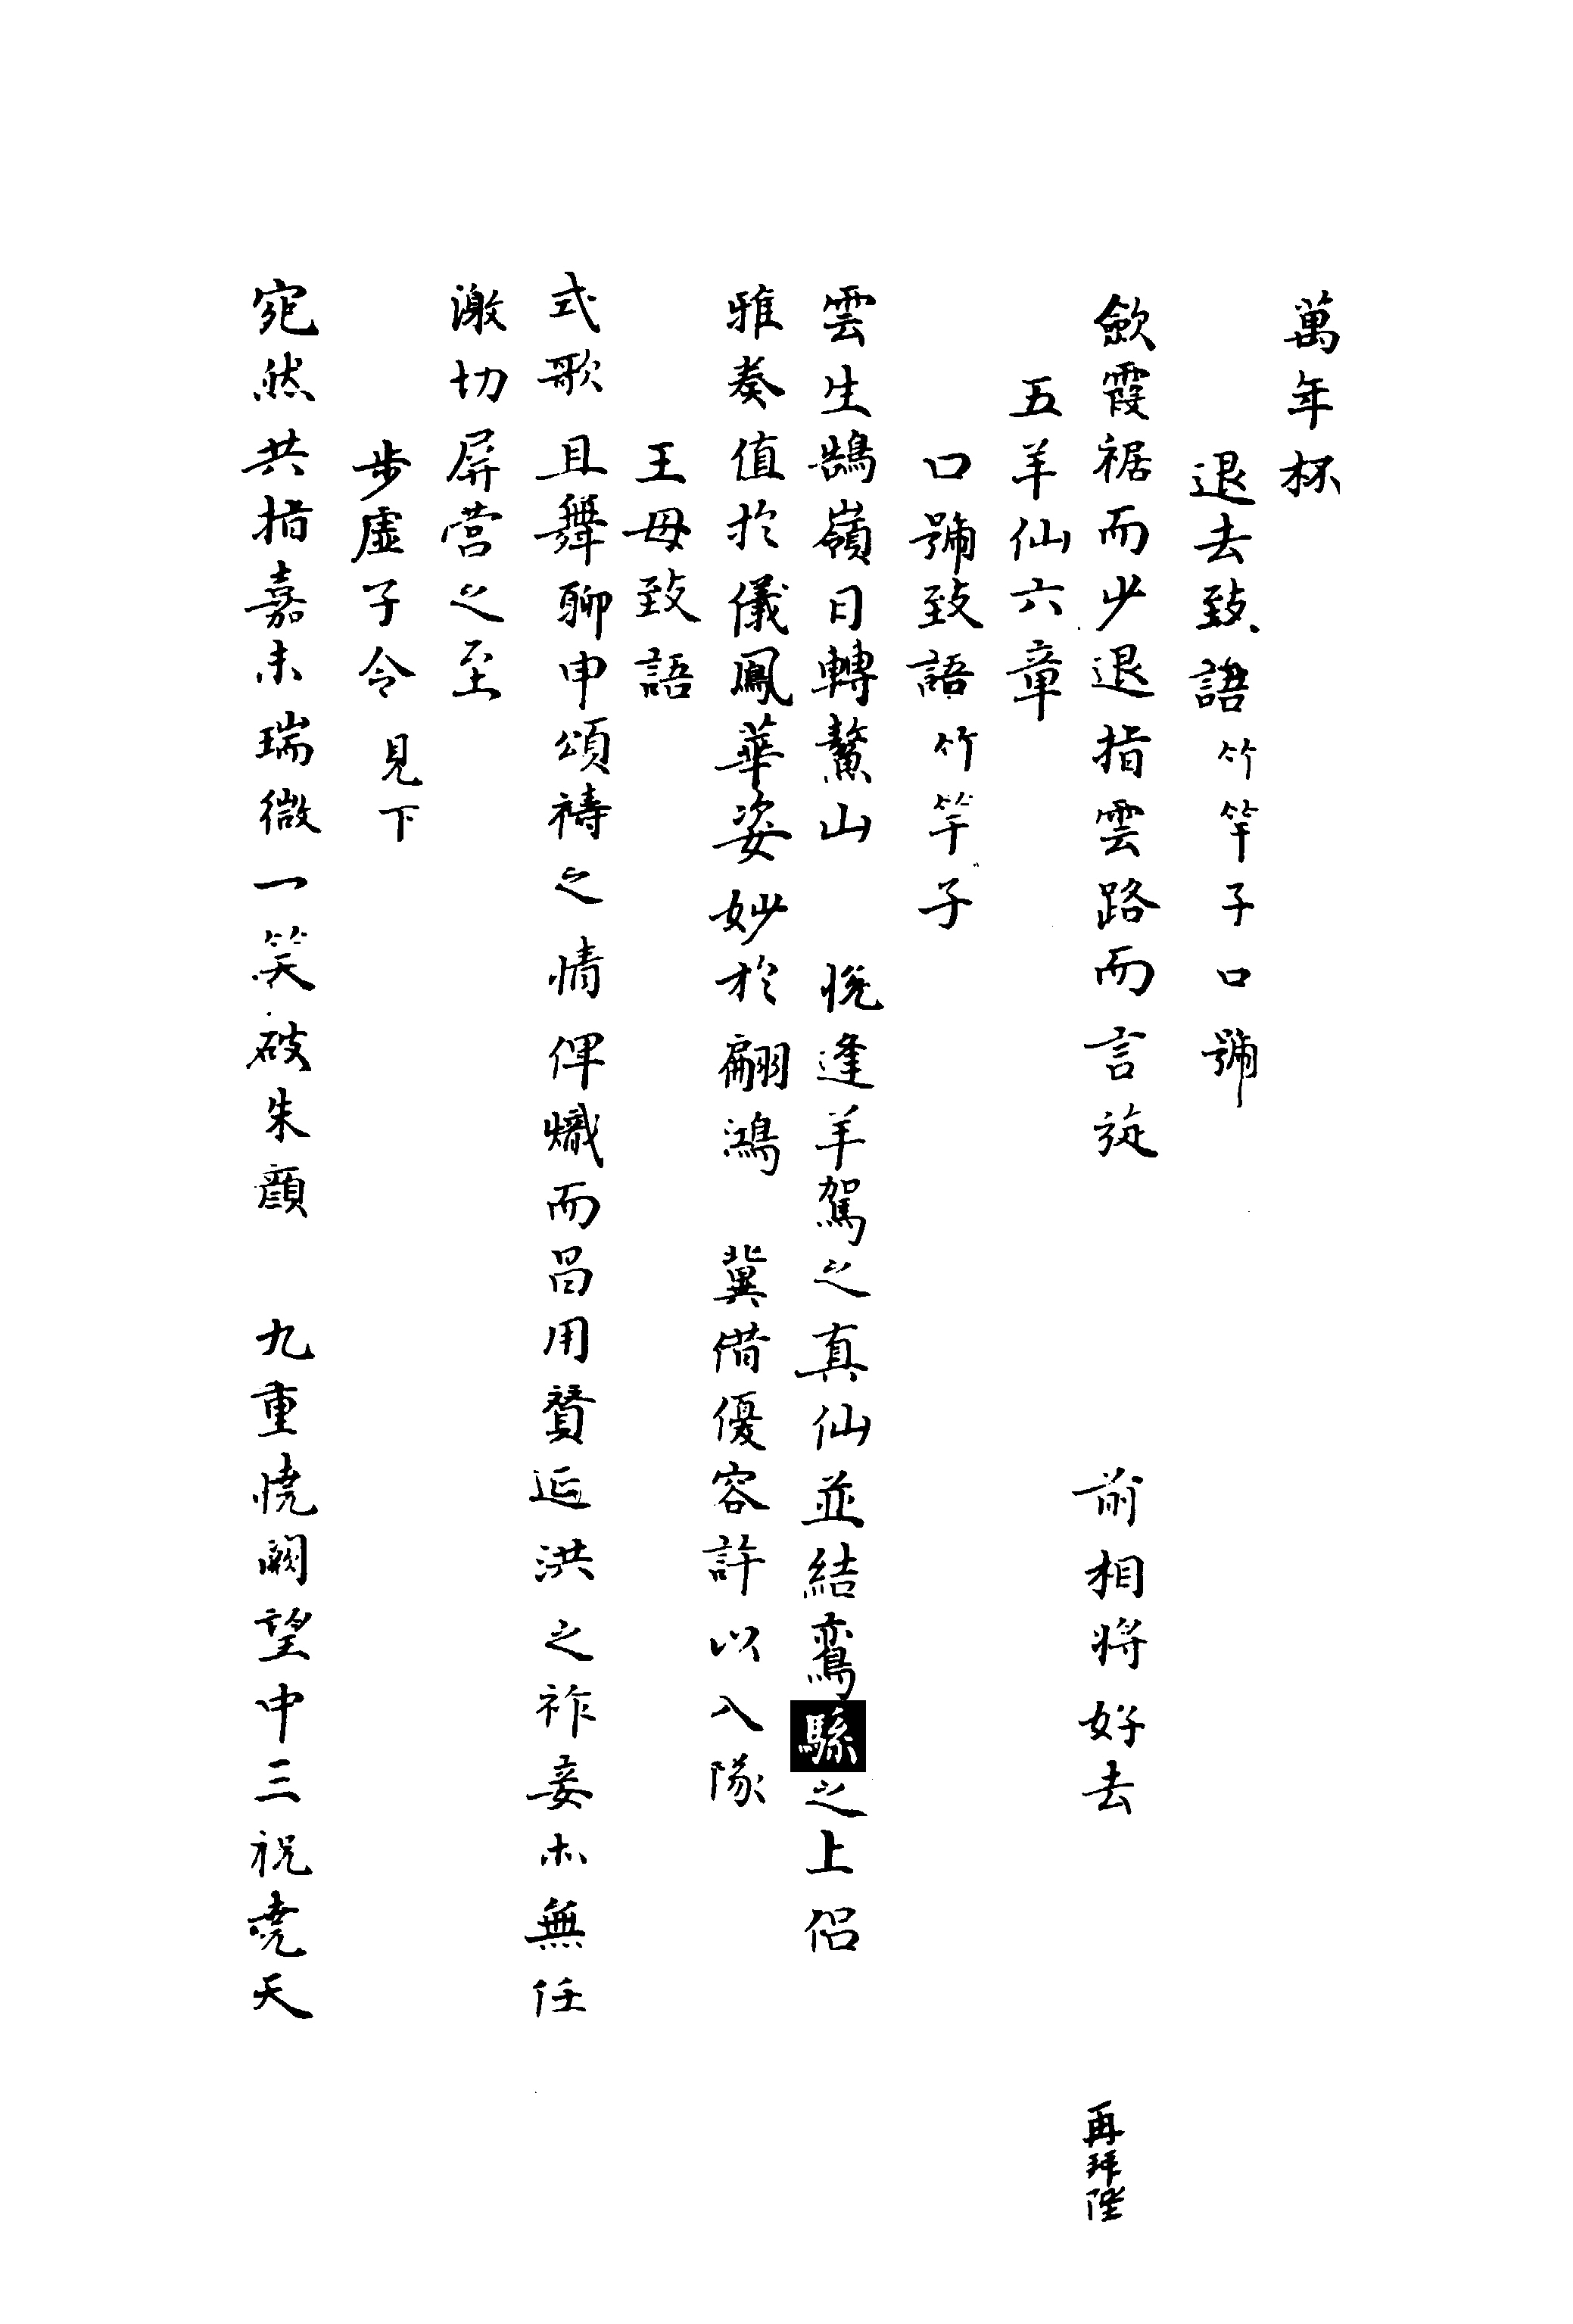 萬年杯
退去致語竹竿子口號
歛霞裾而少退指雲路而言旋 再拜陛前相將好去
五羊仙六章
口號致語竹竿子
雲生鵠嶺日轉鰲山 悅逢羊駕之真仙並結鸞驂之上侶
雅奏值於儀鳳華姿妙於翩鴻 冀借優容許以入隊
王母致語
式歌且舞聊申頌禱之情俾熾而昌用贊延洪之祚妾等無任
激切屏營之至
步虛子令見下
宛然共指嘉禾瑞微一笑破朱顏 九重嶢闕望中三祝堯天